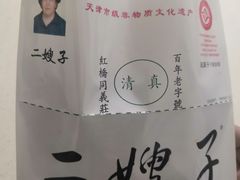 天津市级非物质文化遗产
二嫂子
百年老字號
清真
紅橋同義莊
二嫂子